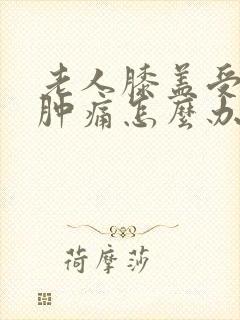 老人膝盖受
肿痛怎麼办
荷摩莎